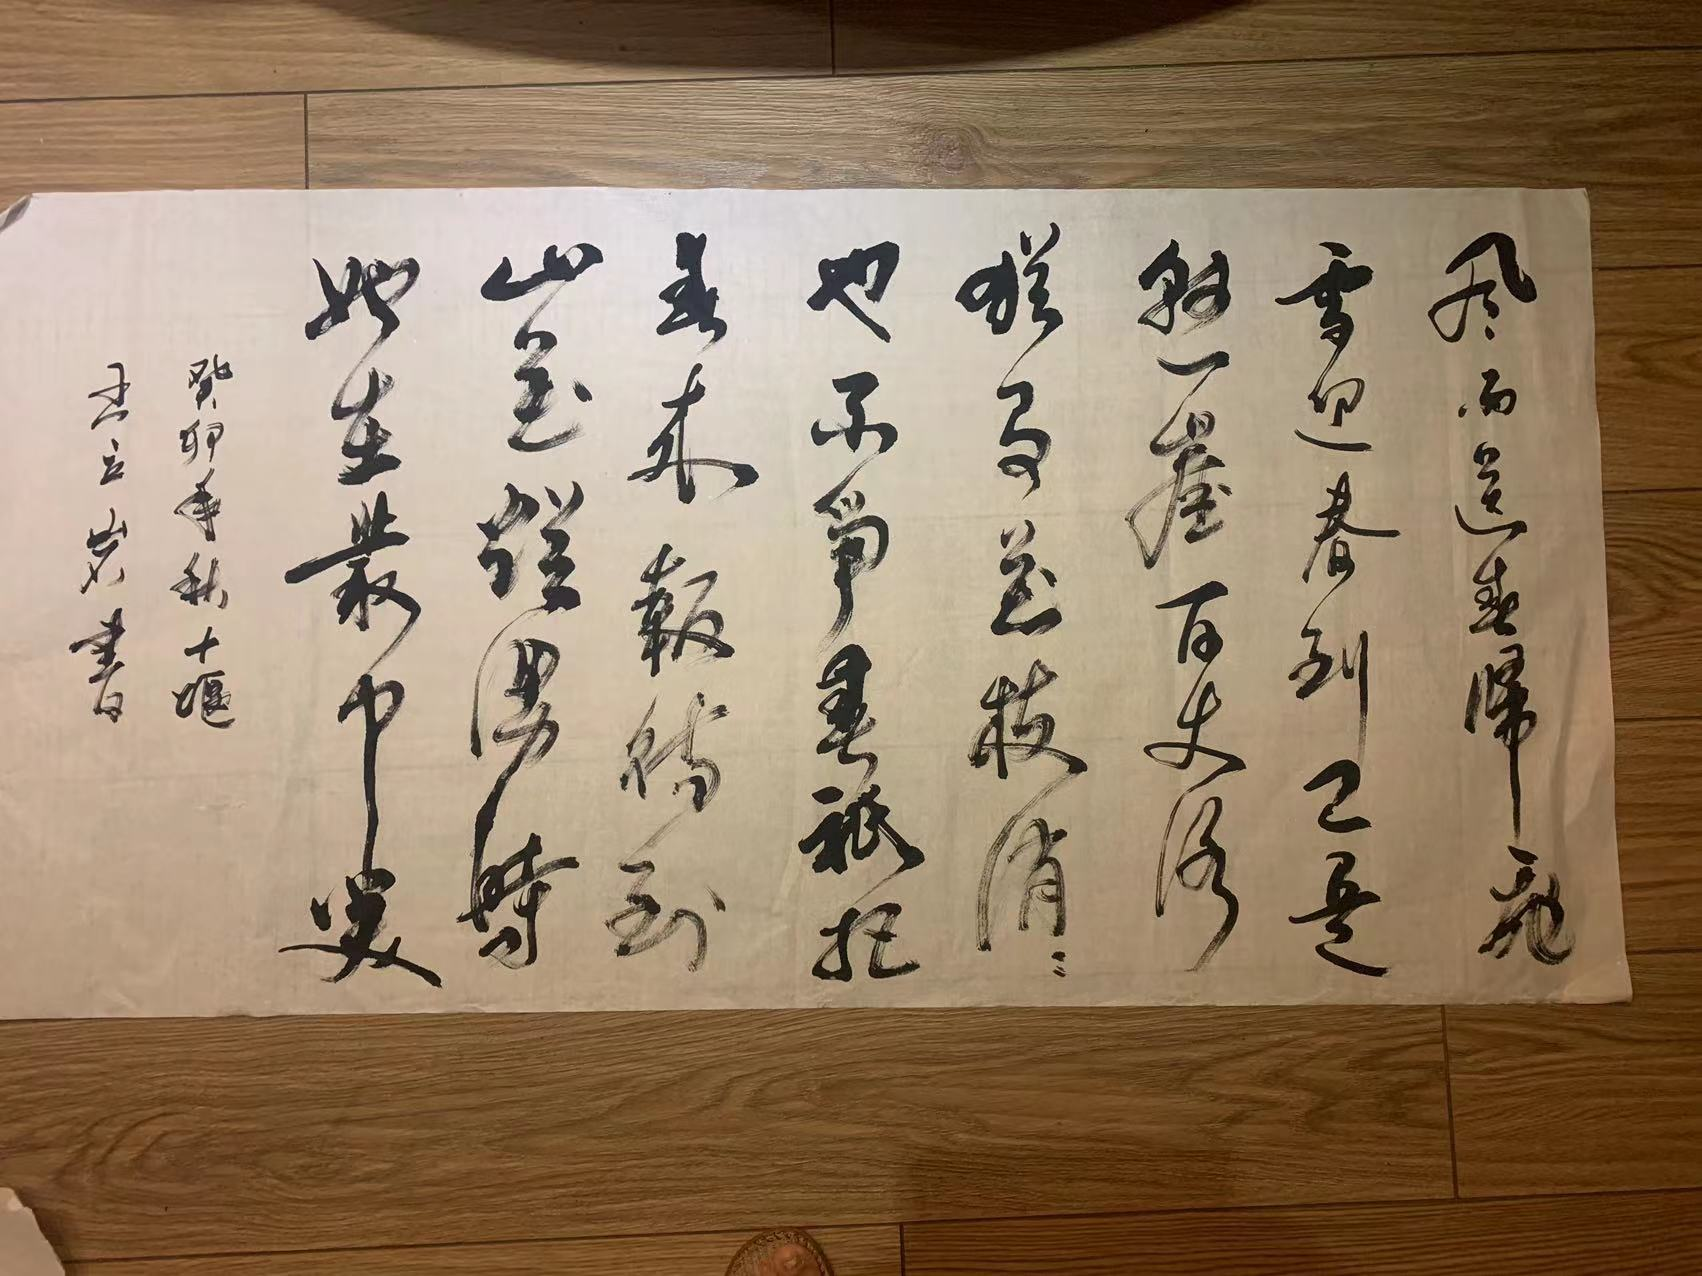 风雨送春歸飛
雪迎春到已是
懸崖百丈冰
猶有花枝俏〻
也不爭春祇把
春来報待到
山花爛漫時
她在叢中笑
癸卯年秋十堰
王立岩書